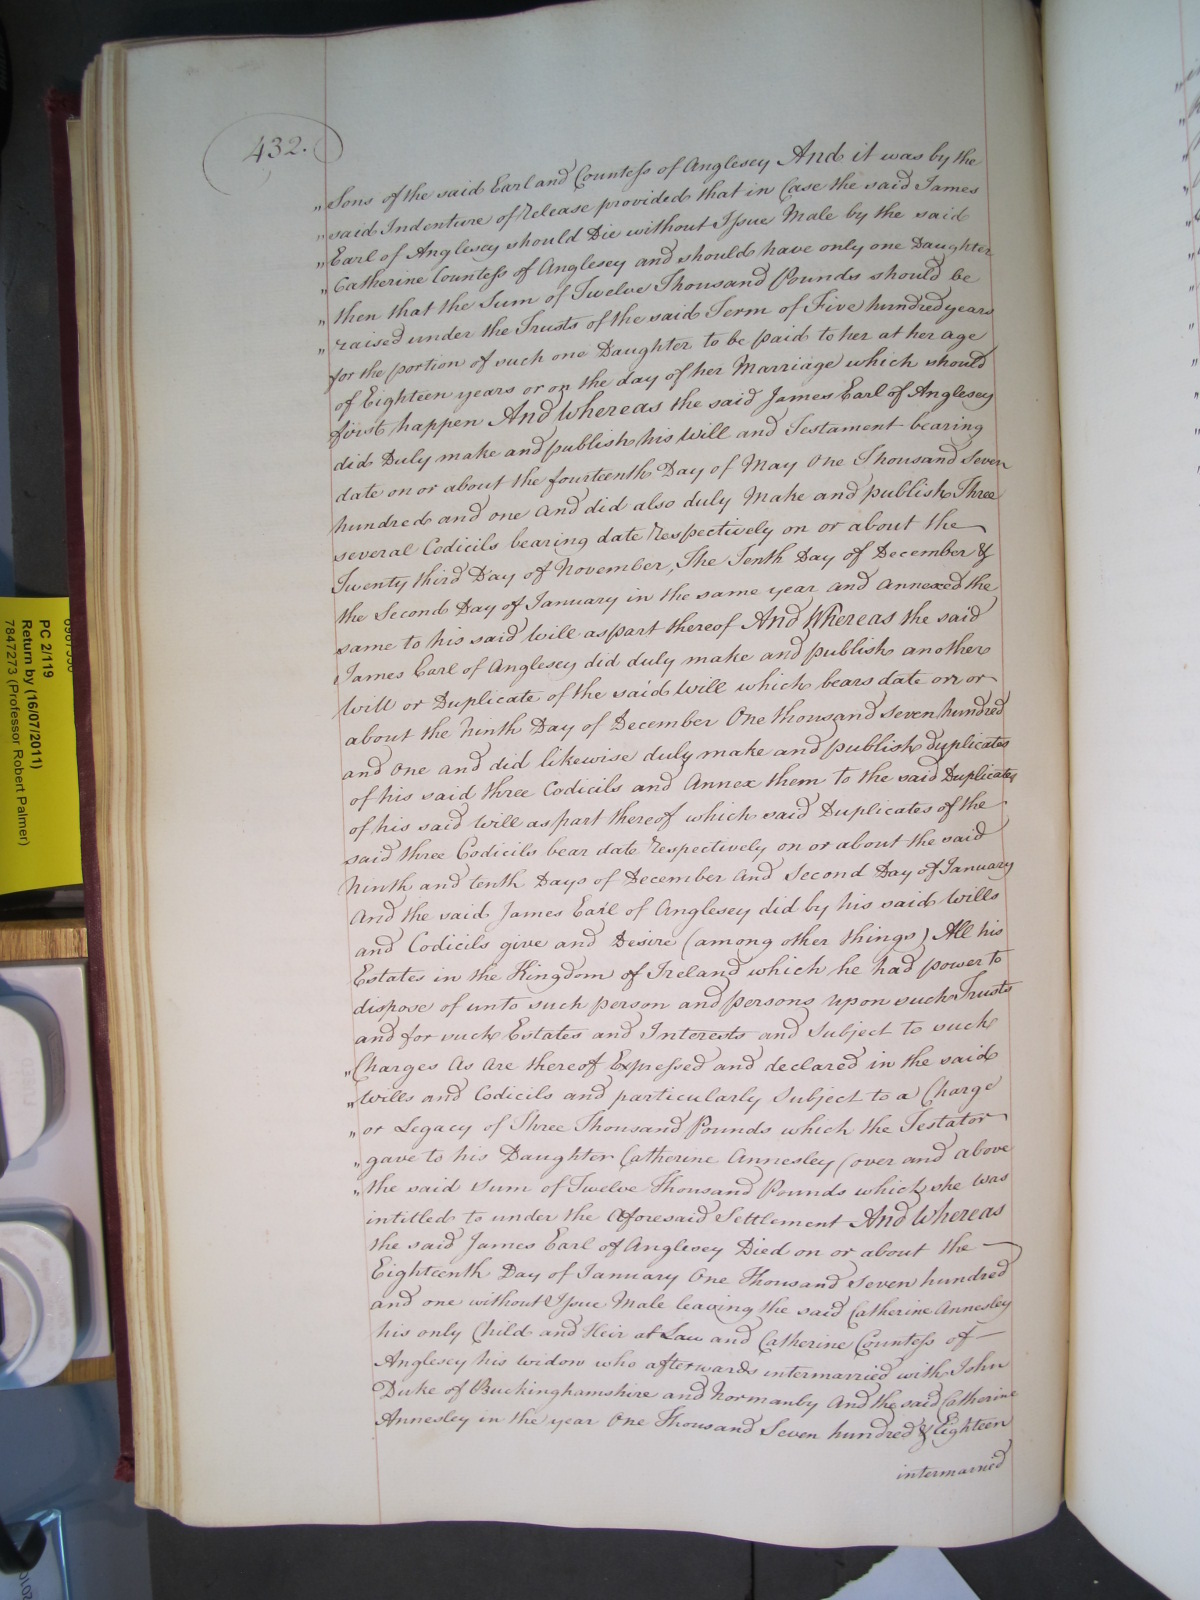 432.
„ Sons of the said Earl and Countess of Anglesey And it was by the
„ said Indenture of Release provided that in Case the said James
„ Earl of Anglesey should Die without Issue Male by the said
„ Catherine Countess of Anglesey and should have only one Daughter
„ then that the Sum of Twelve Thousand Pounds should be
„ raised under the Trusts of the said Term of Five hundred years
for the portion of such one Daughter to be paid to her at her age
of Eighteen years or on the day of her Marriage which should
first happen And Whereas the said James Earl of Anglesey
did Duly make and publish his Will and Testament bearing
date on or about the fourteenth Day of May One Thousand Seven
hundred and one and did also duly Make and publish Three
several Codicils bearing date Respectively on or about the
Twenty third Day of November, The Tenth Day of December &
the Second Day of January in the same year and annexed the
same to his said Will as part thereof And Whereas the said
James Earl of Anglesey did duly make and publish another
Will or Duplicate of the said Will which bears date on or
about the Ninth Day of December One thousand seven hundred
and One and did likewise duly make and publish Duplicates
of his said three Codicils and Annex them to the said Duplicates
of his said Will as part thereof which said Duplicates of the
said three Codicils bear date Respectively on or about the said
Ninth and tenth Days of December and Second Day of January
And the said James Earl of Anglesey did by his said Wills
and Codicils give and Desire (among other things) All his
Estates in the Kingdom of Ireland which he had power to
dispose of unto such person and persons upon such Trusts
and for such Estates and Interests and Subject to such
„ Charges As are thereof Expressed and declared in the said
„ Wills and Codicils and particularly Subject to a Charge
„ or Legacy of Three Thousand Pounds which the Testator
„ gave to his Daughter Catherine Annesley (over and above
„ the said Sum of Twelve Thousand Pounds which she was
intitled to under the Aforesaid Settlement And Whereas
the said James Earl of Anglesey Died on or about the
Eighteenth Day of January One Thousand Seven hundred
and one without Issue Male leaving the said Catherine Annesley
his only Child and Heir at Law and Catherine Countess of
Anglesey his widow who afterwards intermarried with John
Duke of Buckinghamshire and Normanby And the said Catherine
Annesley in the year One Thousand Seven hundred & Eighteen
intermarried
PC 2/119
Return by (16/07/2011)
7847273 (Professor Robert Palmer)